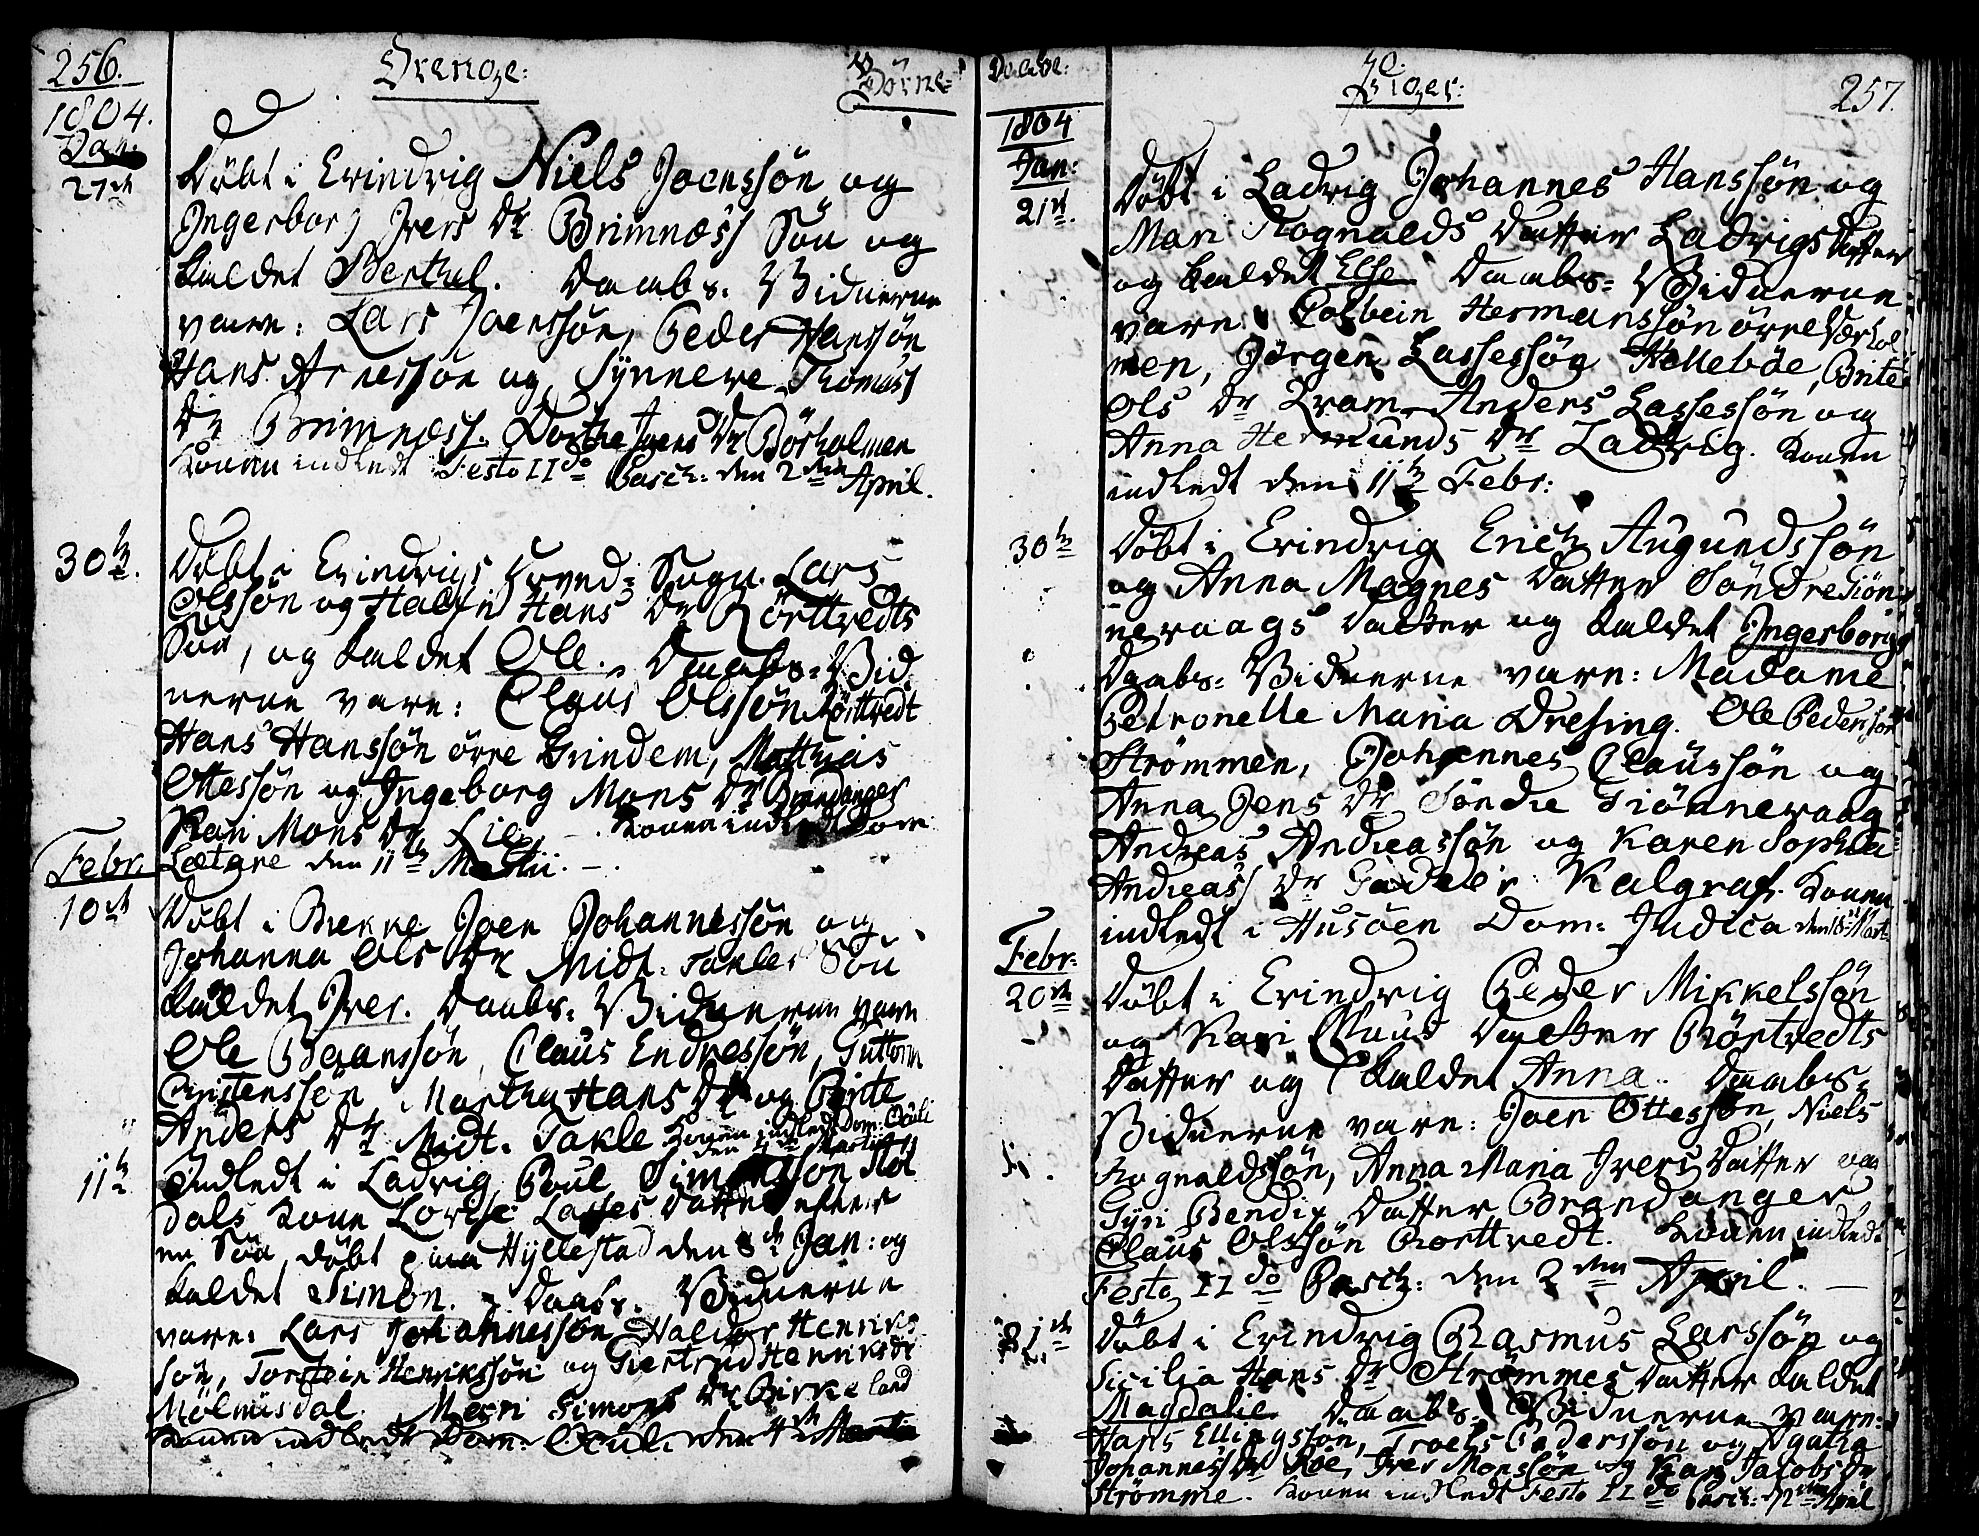 256.
Drenge:
Börne
1804.
Jan:
27de
Döbt i Evindvig Niels Joenssön og
Ingerborg Ivers Dr Brimnæss Sön og
kaldet Berthel. Daabs. Vidnerne
vare: Lars Joenssön, Peder Hanssön
Hans Arnessön og Synneve Thomass
Dr Brimnæss. Dorthe Joens Dr Börholmen
Konen indledt Festo II do Pasch: den 2den April.
30te.
Döbt i Evindvigs Hrved: Sogn. Lars
Olssön og Hans Dr Rörttvedts
Sön, og kaldet Ole. Daabs. Vid
nerne vare: Claus Olssön Rörttvedt
Hans Hanssön örre Grindem, Matthias
Ottessön og Ingeborg Mons Dr Brandanger
Kari Mons Dr Lie. Konen indledt Dom:
Lætare den 11te Martii.
Febr.
10de
Döbt i Brekke Joen Johannessön og
Johanna Ols Dr Midt. Takles Sön
kaldet Iver. Daabs. Vidnerne vare
Ole Brianssön, Claus Endressön, Guttorm
Christenssön Martha Hans Dr og Brite
Anders Dr Midt. Takle Konen indledt Dom: Oculi
den 4de Martii
11te
Indledt i Ladvig Poul Simonssön
dals Kone Lovise Lasses Datter efter
en Sön döbt paa Hyllestad den 8de Jan: og
kaldet Simon. Daabs. Vidnerne
vare. Lars Johannessön Haldor Henriks
sön, Torstein Henrikssön og Giertrud Henriks Dr
Mölmisdal. Meri Simons Dr Birkeland
Konen indledt Dom: Oculi den 4de Martii
Daabe:
Piger:
257.
1804
Jan:
21de.
Döbt i Ladvig Johannes Hanssön og
Mari Rognalds Datter Ladvigs Datter
og kaldet Else Daabs: Vidnerne
vare: Colbein Hermanssön örre Værhol
men, Jörgen Lassessön Helleböe, Brite
Ols Dr Qvam. Anders Lassessön og
Anna Hermunds Dr Ladvig. Konen
indledt den 11te Febr:
30te
Döbt i Evindvig Erich Augundssön
og Anna Magnes Datter Söndre Giön
neraags Datter og kaldet Ingerborg
Daabs: Vidnerne vare: Madame
Petronelle Maria Dresing. Ole Pederssön
Strömmen, Johannes Claussön og
Anna Jens Dr Söndre Giönneraag
Andreas Andreassön og Karen Sophia
Andreass Dr Kalgraf. Konen
indledt i Husöen Dom: Judica den 18de Mart:
Febr:
20de
Döbt i Evindvig Peder Mikkelssön
og Kari Knud Datter Rörtvedts
Datter og kaldet Anna. Daabs.
Vidnerne vare: Joen Ottessön, Niels
Rognaldssön, Anna Maria Ivers Datter og
Gyri Bendix Datter Brandanger
Claus Olssön Rörttvedt. Konen indledt
Festo II do Pasch: den 2den April.
21de
Döbt i Evindvig Rasmus Larssön og
Sicilia Hans Dr Strömmes Datter kaldet
Magdalie Daabs. Vidnerne vare:
Hans Ellingssön, Troels Pederssön og Agatha
Johannes Dr Röe, Iver Monssön og Kari Jacobs Dr
Strömme. Konen indledt Festo II do Pasch: d. 2den April